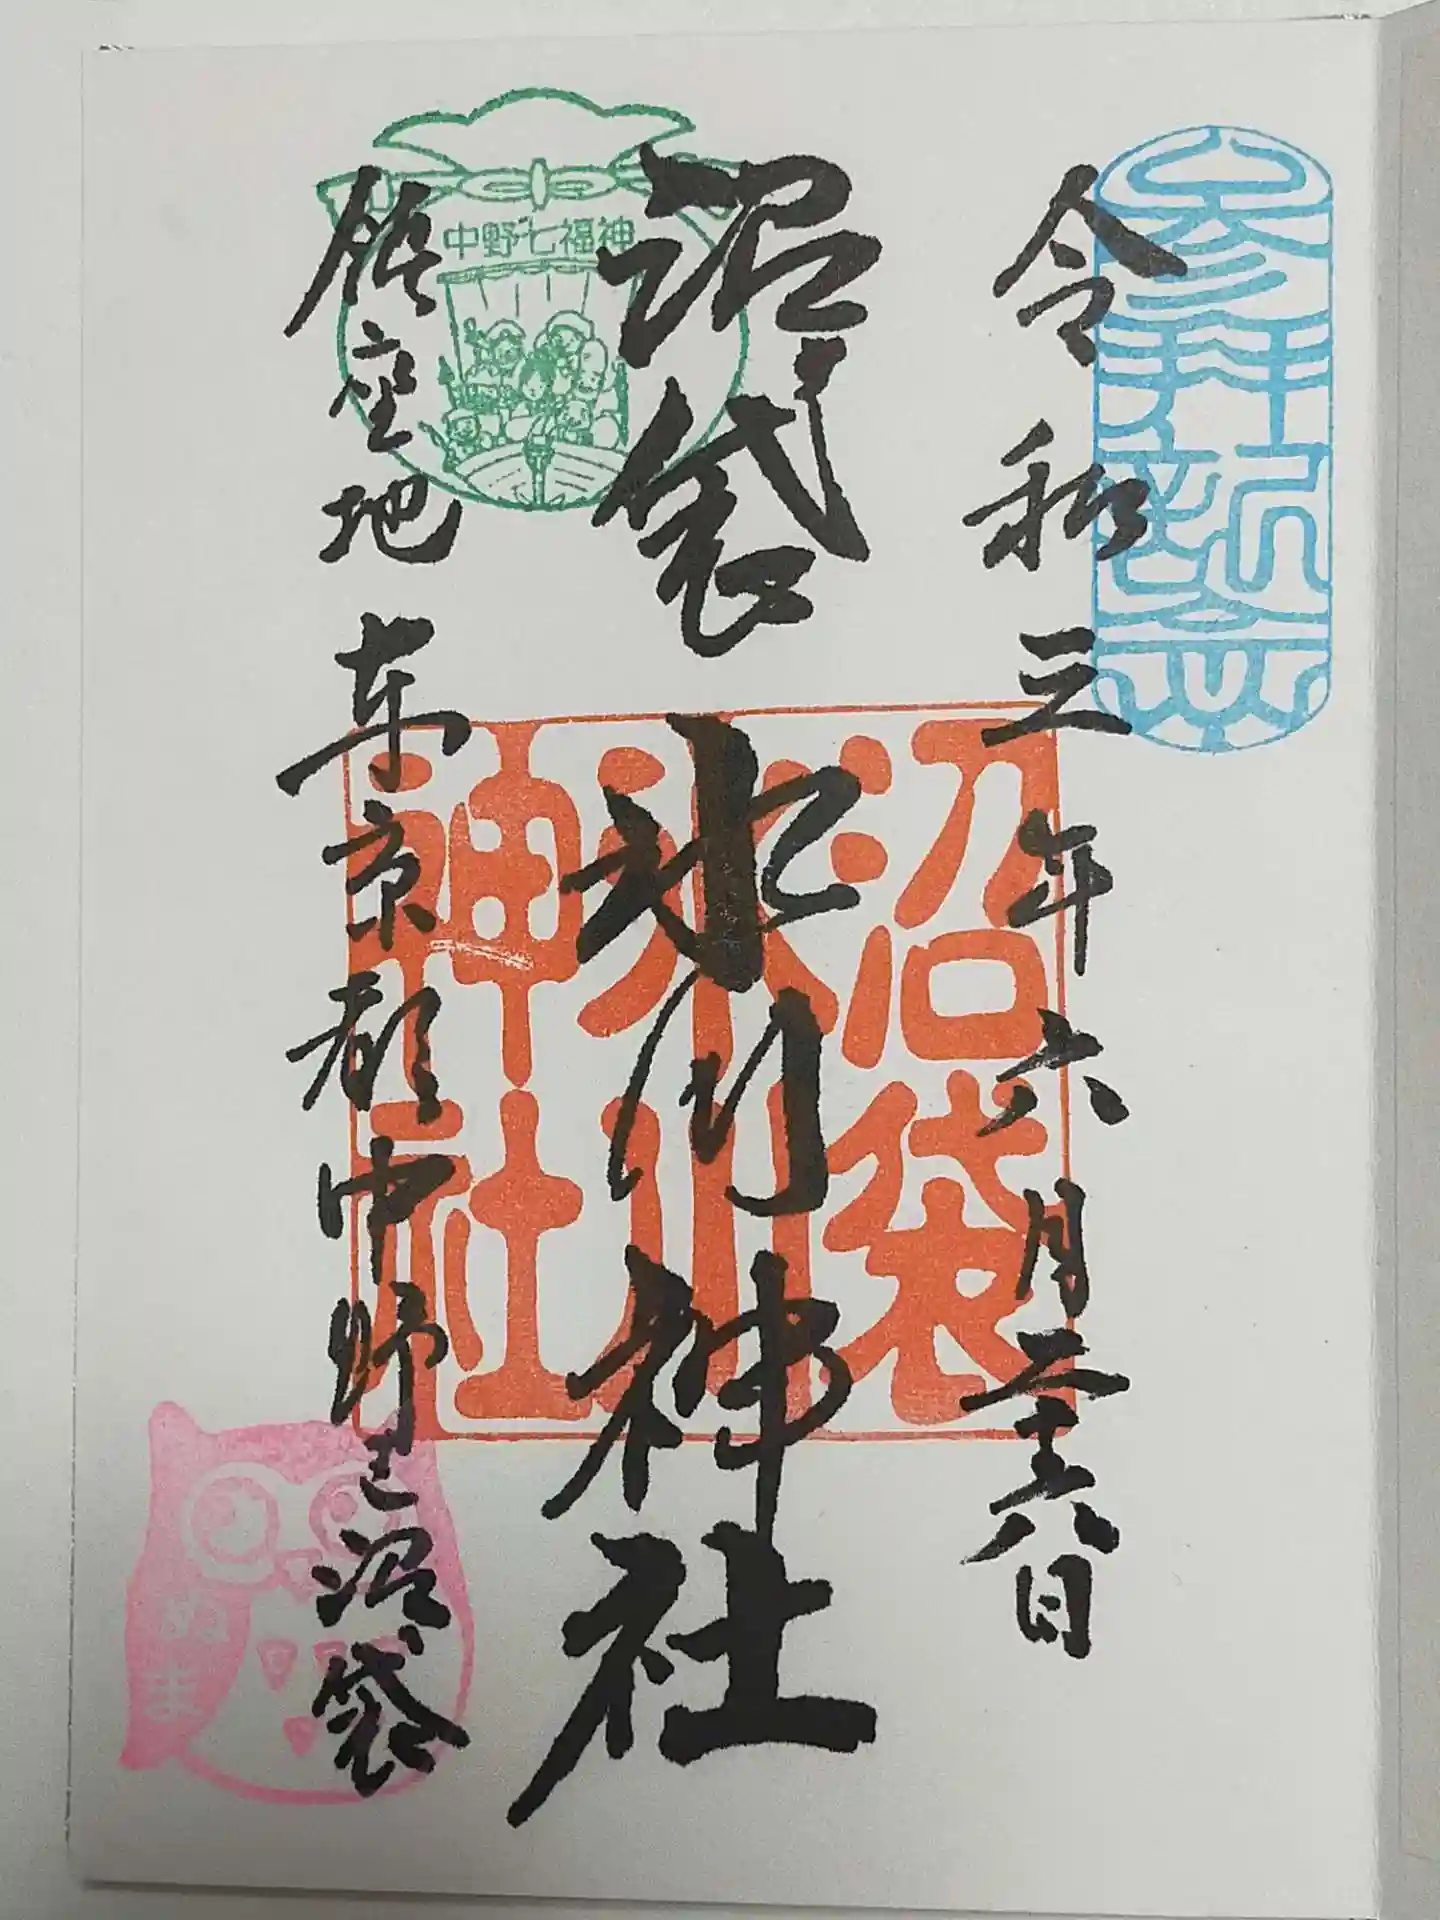 参拝記念
令和三年六月二十六日
沼袋氷川神社
沼袋
氷川
神社
中野七福神
鎮座地 東京都中野区沼袋
ぬま